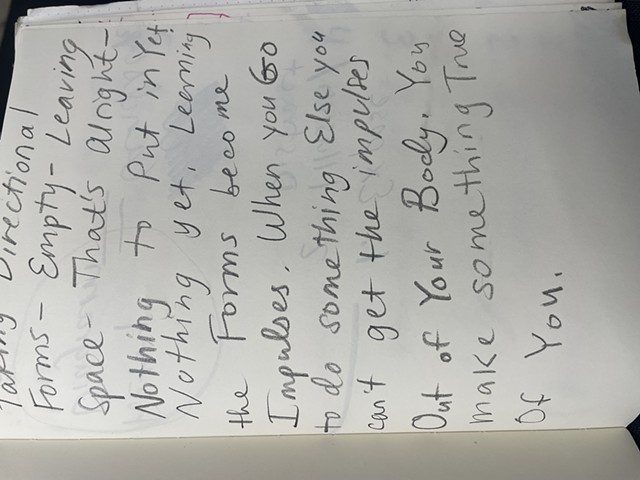 Taking Directional
Forms - Empty - Leaving
Space - That's alright -
Nothing to Put in Yet
Nothing yet. Learning
the Forms become
Impulses. When you Go
to do something Else you
can't get the impulses
Out of Your Body. You
make something True
Of You.